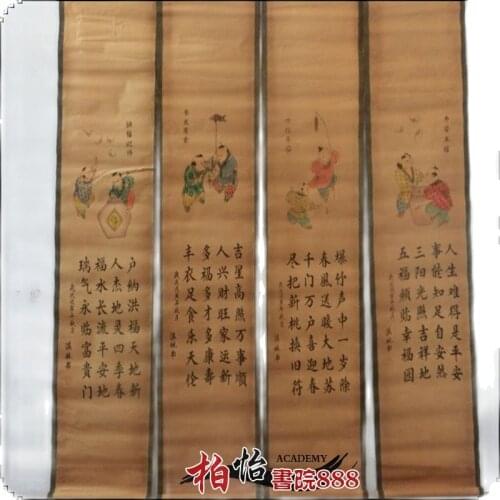 人生难得是平安
事能知足自安然
三阳光照吉祥地
五福频临幸福园
爆竹声中一岁除
春风送暖大地苏
千门万户喜迎春
尽把新桃换旧符
吉星高照万事顺
人兴财旺家运新
多福多才多康寿
丰衣足食乐天伦
户纳洪福天地新
人杰地灵四季春
福水长流平安地
瑞气永临富贵门
ACADEMY
柏怡書院888